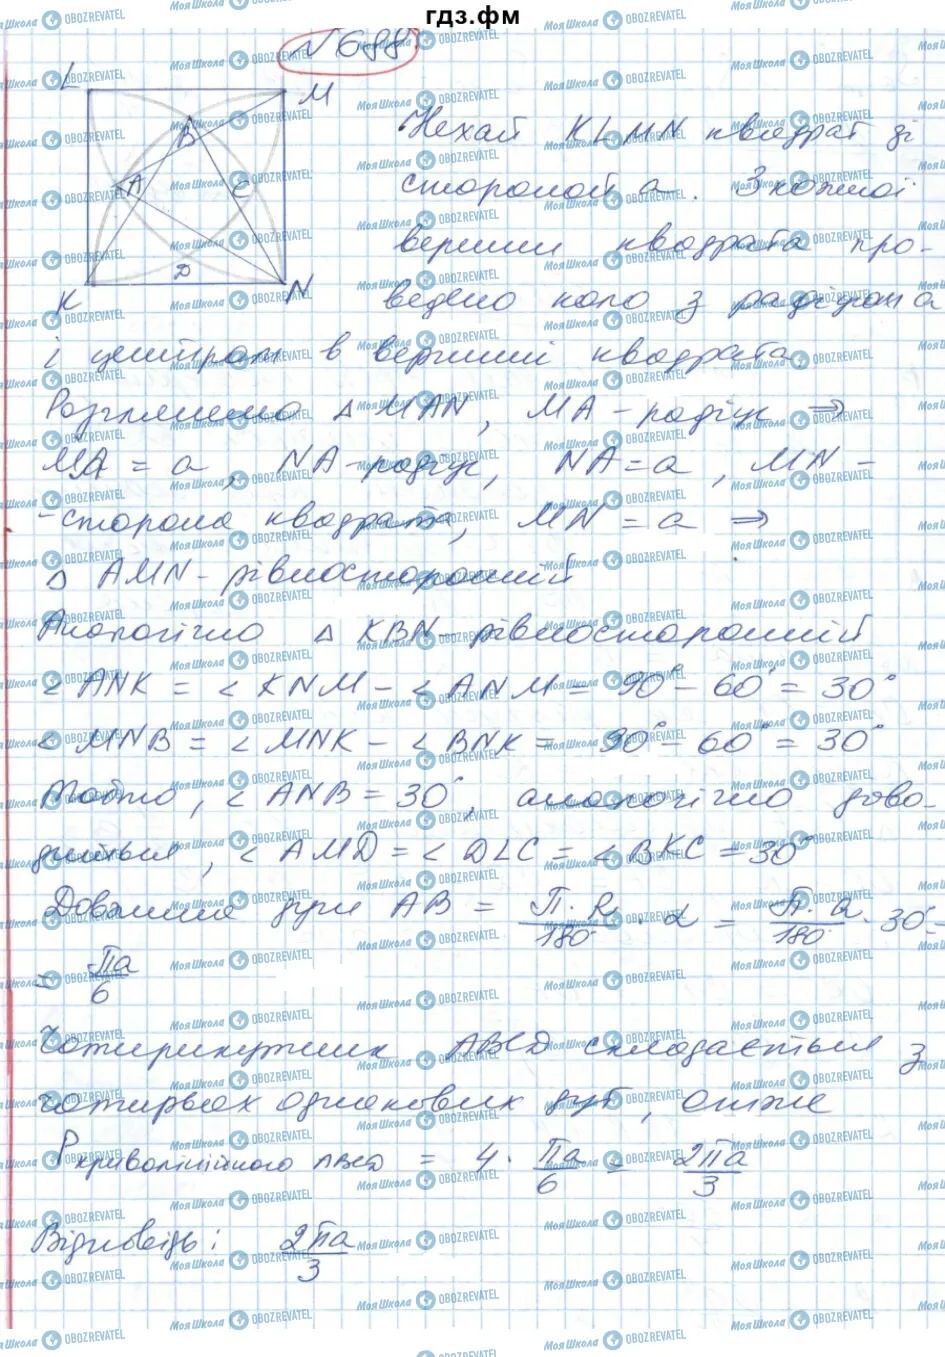 гдз.фм
№688
L M
B
A C
D
K N
Нехай KLMN квадрат зі
стороною a. З кожної
вершини квадрата про-
ведено коло з радіусом a
і центром в вершині квадрата.
Розглянемо △ MAN, MA - радіус ⇒
MA = a, NA - радіус, NA = a, MN -
- сторона квадрата, MN = a ⇒
△ AMN - рівносторонній
Аналогічно △ KBN - рівносторонній
∠ ANK = ∠ KNM - ∠ ANM = 90° - 60° = 30°
∠ MNB = ∠ MNK - ∠ BNK = 90° - 60° = 30°
Тобто, ∠ ANB = 30°, аналогічно дово-
диться, ∠ AMD = ∠ DLC = ∠ BKC = 30°
Довжина дуги AB = П·R/180° · α = П·a/180° · 30° =
= Пa/6
Чотирикутник ABCD складається з
чотирьох однакових дуг, отже
P криволінійного ABCD = 4 · Пa/6 = 2Пa/3
Відповідь: 2Пa/3
Моя Школа OBOZREVATEL